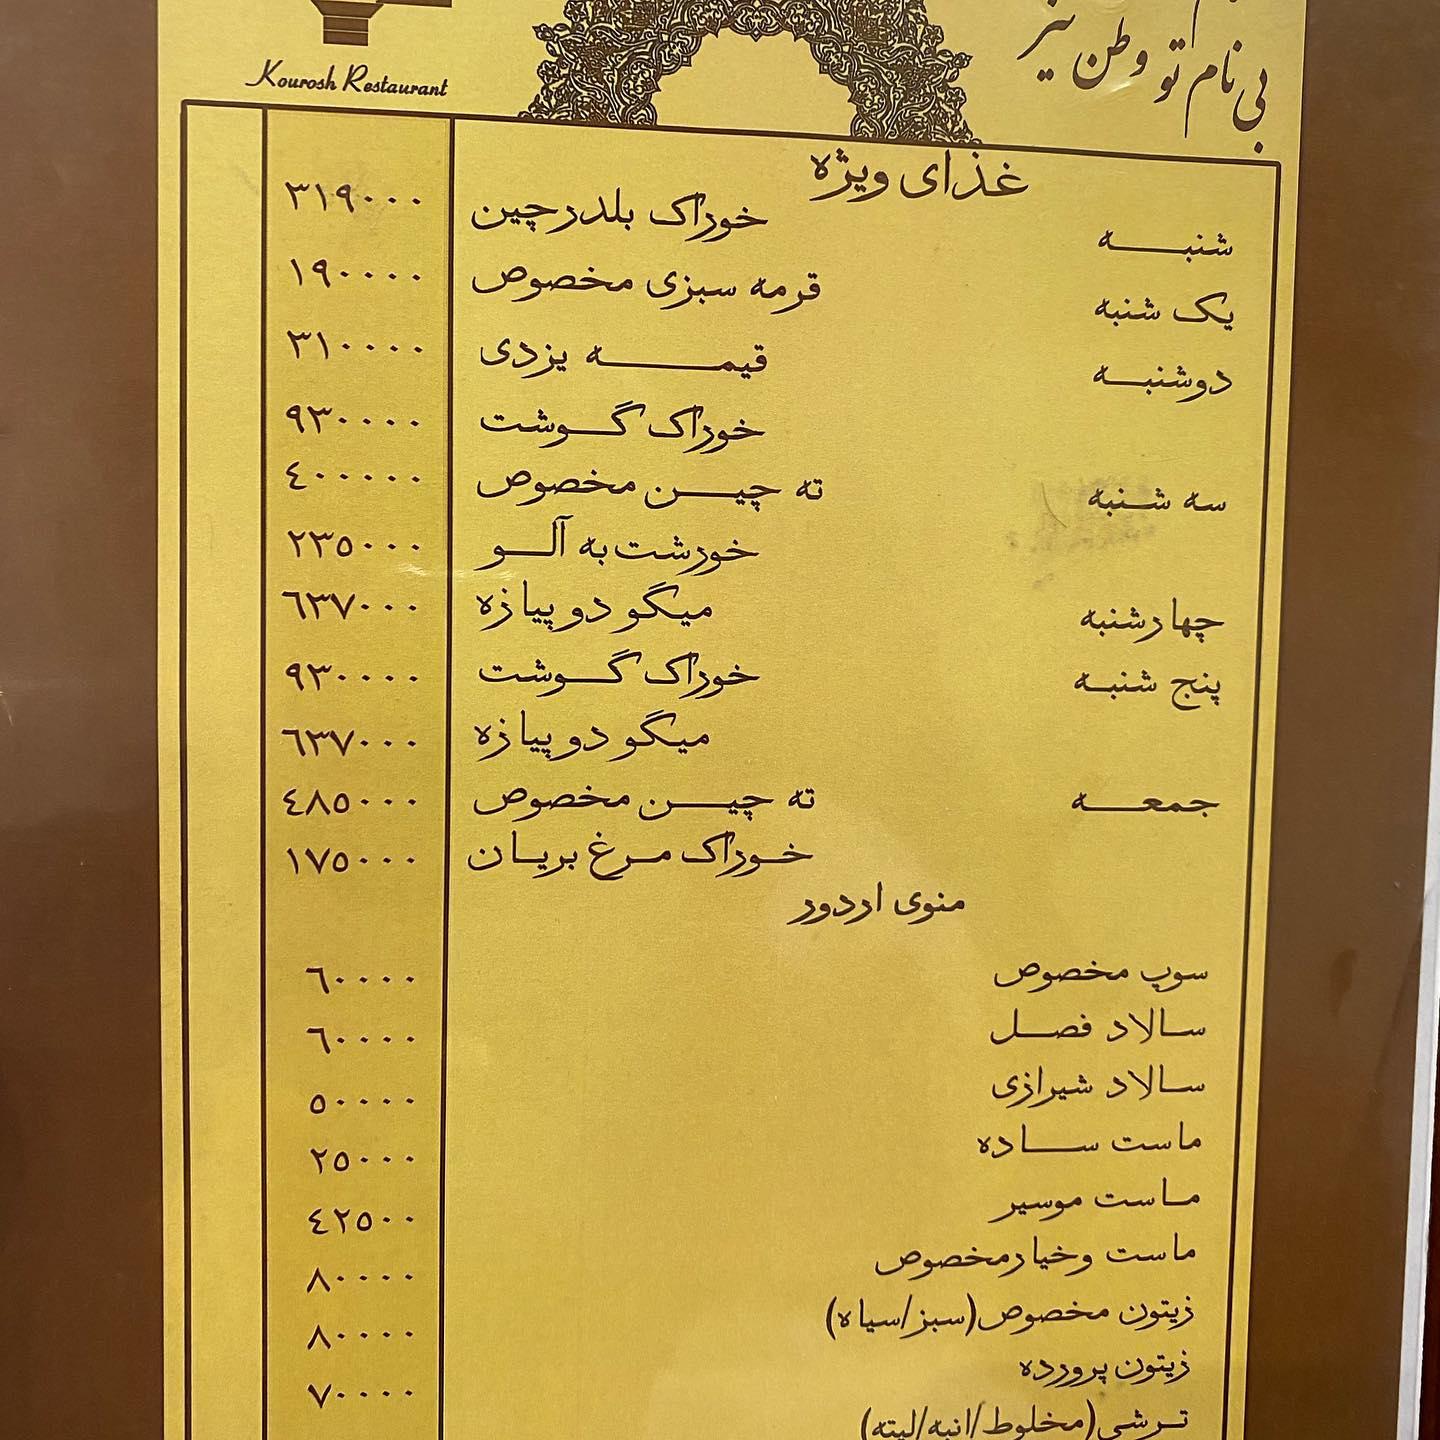 بی نام تو وطن نیز
Kourosh Restaurant
غذای ویژه
شنبه خوراک بلدرچین ۳۱۹۰۰۰
یک شنبه قرمه سبزی مخصوص ۱۹۰۰۰۰
دوشنبه قیمه یزدی ۳۱۰۰۰۰
خوراک گوشت ۹۳۰۰۰۰
سه شنبه ته چین مخصوص ٤۰۰۰۰۰
خورشت به آلو ۲۳٥۰۰۰
چهارشنبه میگو دوپیازه ٦۳۷۰۰۰
پنج شنبه خوراک گوشت ۹۳۰۰۰۰
میگو دوپیازه ٦۳۷۰۰۰
جمعه ته چین مخصوص ٤۸٥۰۰۰
خوراک مرغ بریان ۱۷٥۰۰۰
منوی اردور
سوپ مخصوص ٦۰۰۰۰
سالاد فصل ٦۰۰۰۰
سالاد شیرازی ٥۰۰۰۰
ماست ساده ۲٥۰۰۰
ماست موسیر ٤۲٥۰۰
ماست وخیارمخصوص ۸۰۰۰۰
زیتون مخصوص(سبز/سیاه) ۸۰۰۰۰
زیتون پرورده ۷۰۰۰۰
ترشی(مخلوط/انبه/لیته)